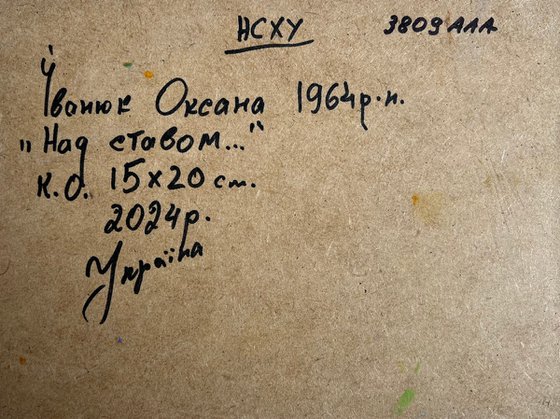 НСХУ 3809 АЛА
Іванюк Оксана 1964р.н.
„Над ставом..."
к.о. 15x20 см.
2024р.
Україна